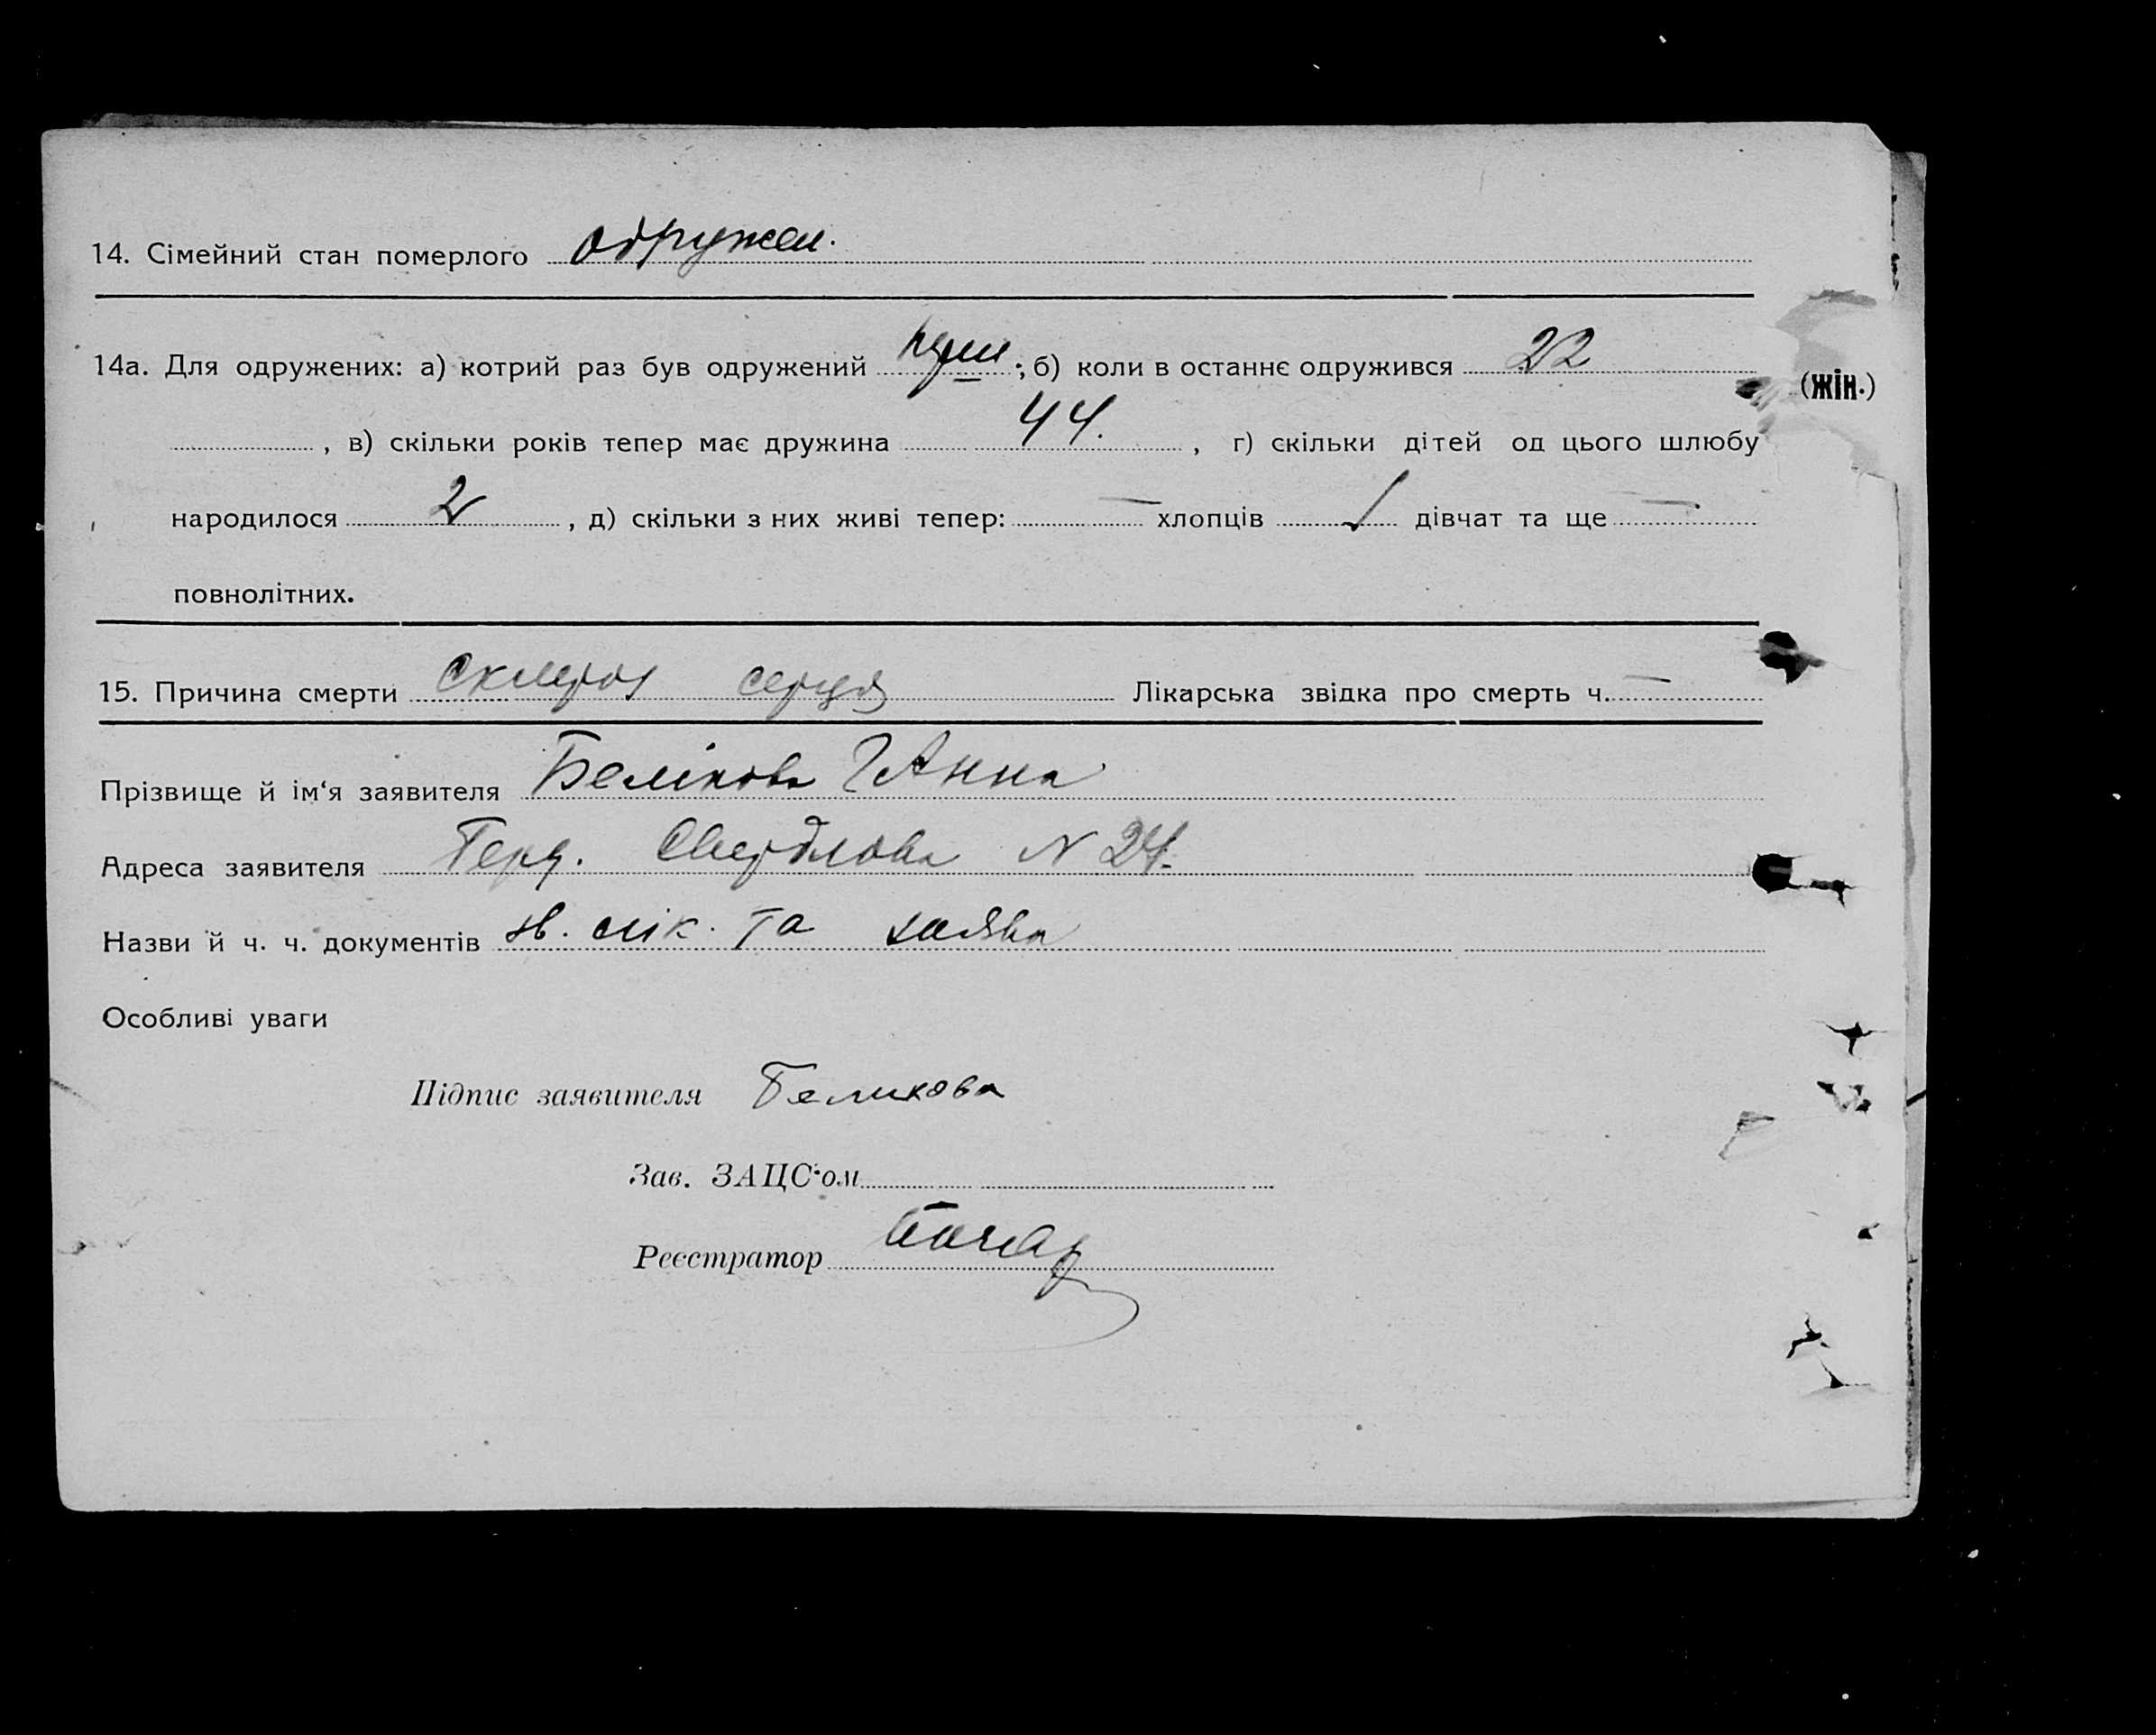 14. Сімейний стан померлого одружен.
14а. Для одружених: а) котрий раз був одружений перш ; б) коли в останнє одружився 22
(жін.)
, в) скільки років тепер має дружина 44. , г) скільки дітей од цього шлюбу
народилося 2 , д) скільки з них живі тепер: — хлопців 1 дівчат та ще —
повнолітних.
15. Причина смерти Склероз серця Лікарська звідка про смерть ч. —
Прізвище й ім'я заявителя Белікова Ганна
Адреса заявителя Свердлова N 24.
Назви й ч. ч. документів зв. лік. та заява
Особливі уваги
Підпис заявителя Беликова
Зав. ЗАЦС'ом
Реєстратор